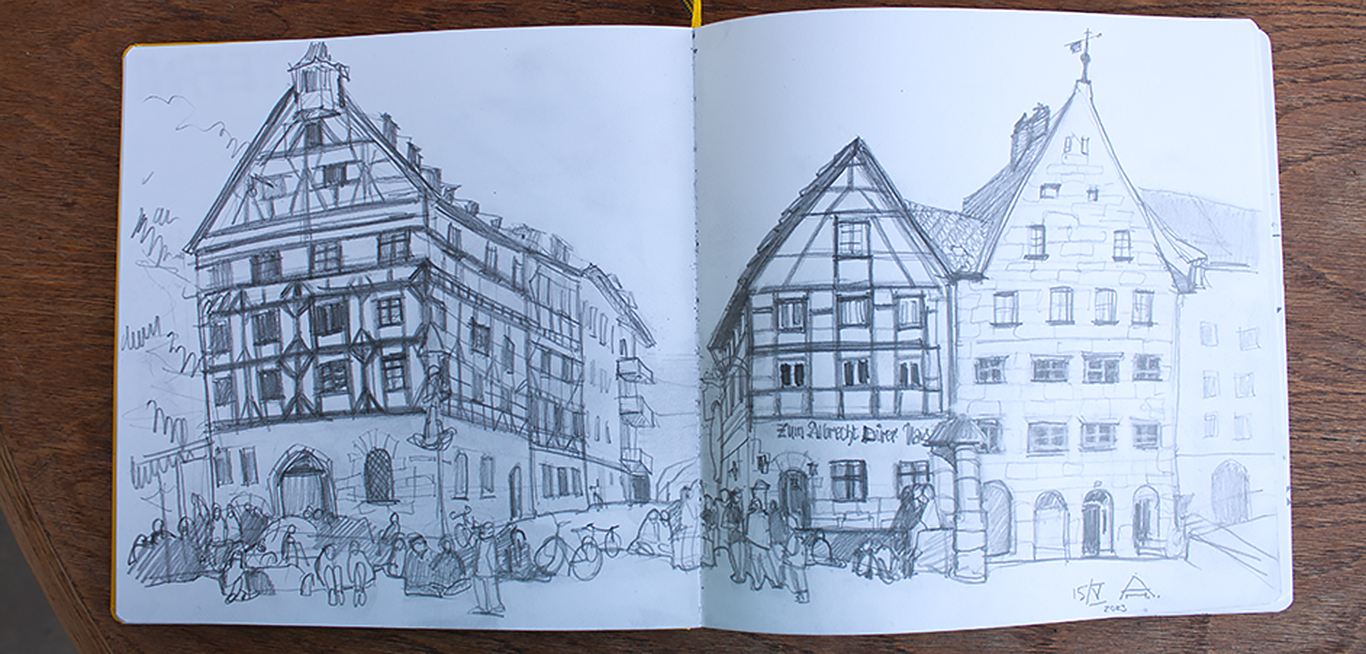 Zum Albrecht Dürer Haus
15/V
2023